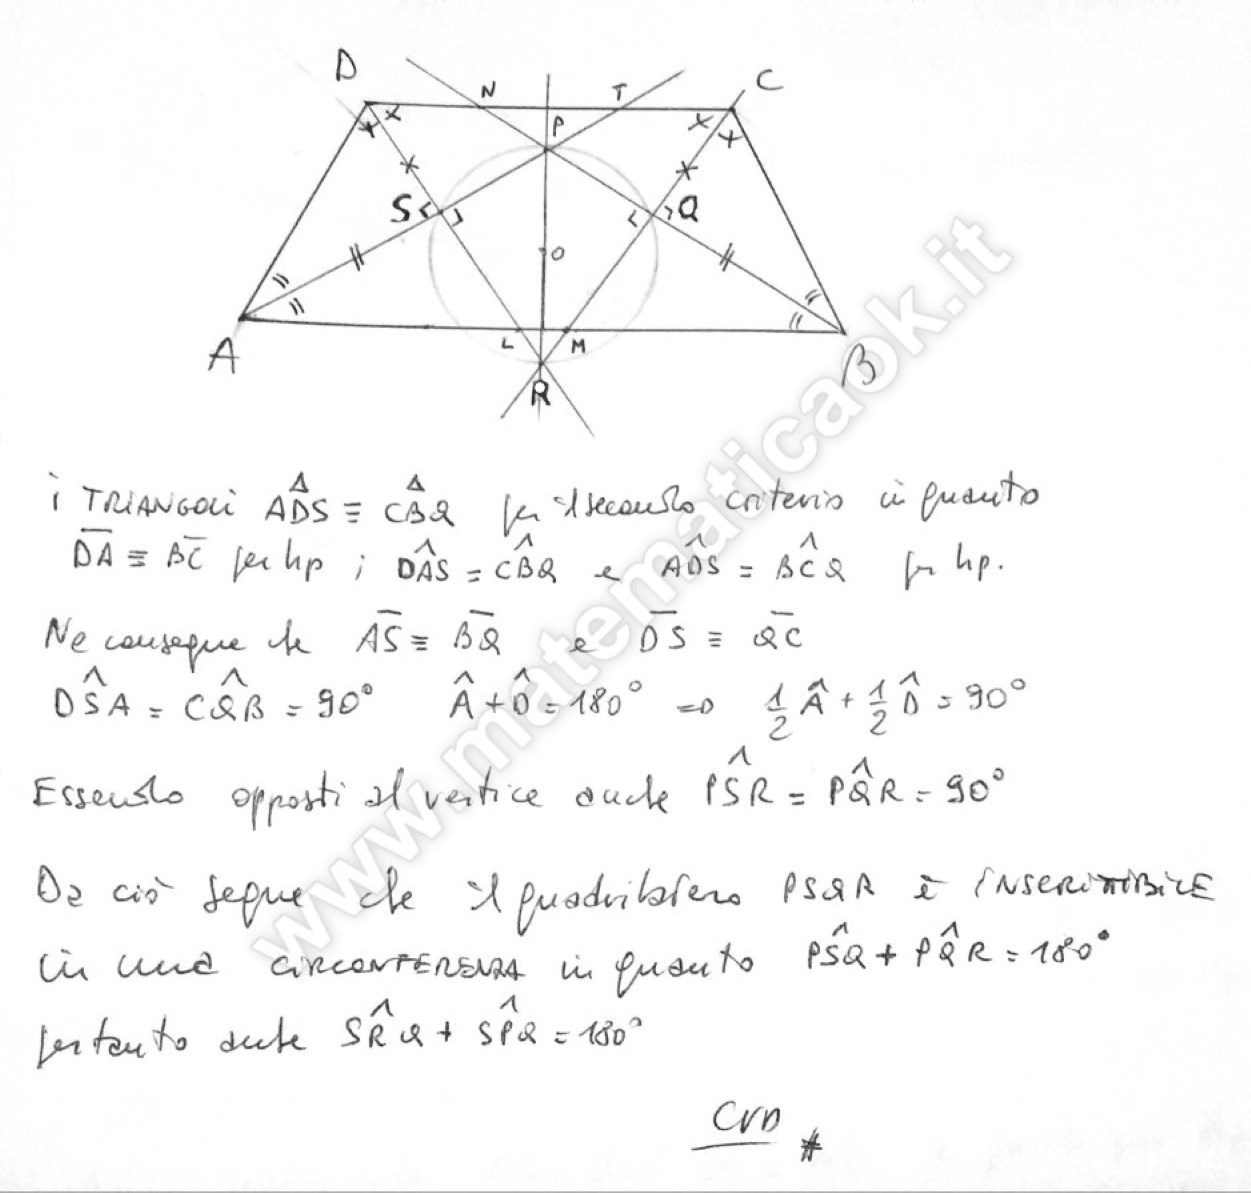 D
N
T
C
P
S
Q
O
A
L
M
B
R
www.matematicaok.it
i TRIANGOLI ADŜ ≡ CB̂Q per il secondo criterio in quanto
D̅A̅ ≡ B̅C̅ per hp ; DÂS = CB̂Q e AD̂S = BĈQ per hp.
Ne consegue che A̅S̅ ≡ B̅Q̅ e D̅S̅ ≡ Q̅C̅
DŜA = CQ̂B = 90° Â + D̂ = 180° => 1/2 Â + 1/2 D̂ = 90°
Essendo opposti al vertice anche PŜR = PQ̂R = 90°
Da ciò segue che il quadrilatero PSQR è INSCRITTIBILE
in una CIRCONFERENZA in quanto PŜQ + PQ̂R = 180°
pertanto anche SR̂Q + SP̂Q = 180°
CVD #